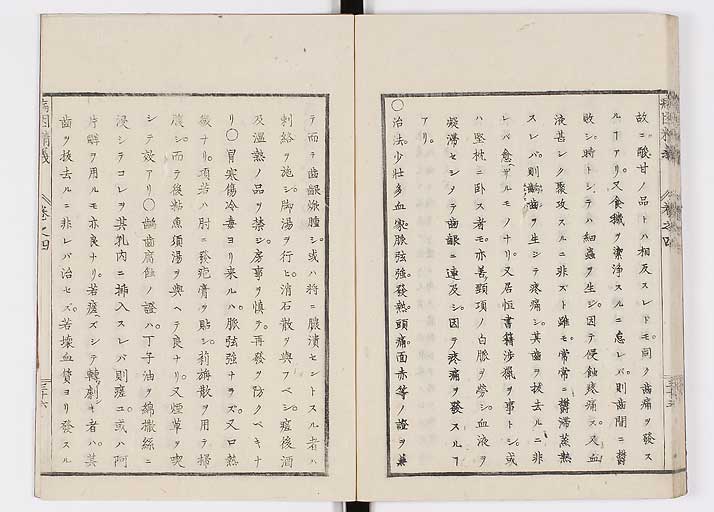 故ニ酸甘ノ品トハ相反スレドモ。同ク齒痛ヲ發ス
ルヿアリ。又食機ヲ潔浄スルニ怠レバ。則齒間ニ
敗シ。時トシテハ細蟲ヲ生シ。因テ侵蝕疼痛ス。又血
液甚シク聚攻スルニ非ズト雖モ。常常ニ鬱滞蒸熱
スレバ。則齲齒ヲ生シテ疼痛シ。其齒ヲ抜去ルニ非
レバ愈ヘザルモノナリ。又居恒書籍渉猟ヲ事トシ。或
ハ堅枕ニ臥ス者モ。亦善頸項ノ白脈ヲ勞シ。血液ヲ
凝滞セシメテ齒齦ニ連及シ。因テ疼痛ヲ發スルヿ
アリ。
〇治法少壮多血家。脈弦強。發熱。頭痛。面赤等ノ證ヲ兼
テ而テ齒齦漲膧シ。或ハ将ニ膿潰セントスル者ハ
刺絡ヲ施シ。脚湯ヲ行ヒ。消石散ヲ與フベシ。痊後酒
及温熱ノ品ヲ禁シ。房事ヲ慎テ。再發ヲ防クベキナ
リ〇冒寒傷冷毒ヨリ来ルハ。脈弦強ナラズ。又口熱
微ナリ。項若ハ肘ニ發疱膏ヲ貼シ。莉旃散ヲ用テ掃
腹シ。而テ後粘魚須湯ヲ與ヘテ良ナリ。又煙草ヲ喫
シテ效アリ〇齲齒腐蝕ノ證ハ。丁子油ヲ綿撒絲ニ
浸シテコレヲ其孔内ニ挿入スレバ則痊ユ。或ハ阿
片ヲ用ルモ亦良ナリ。若痊ヘズシテ轉劇シキ者ハ。其
齒ヲ抜去ルニ非レバ治セズ。若壊血債ヨリ發スル
病因精義 巻之四
三十六